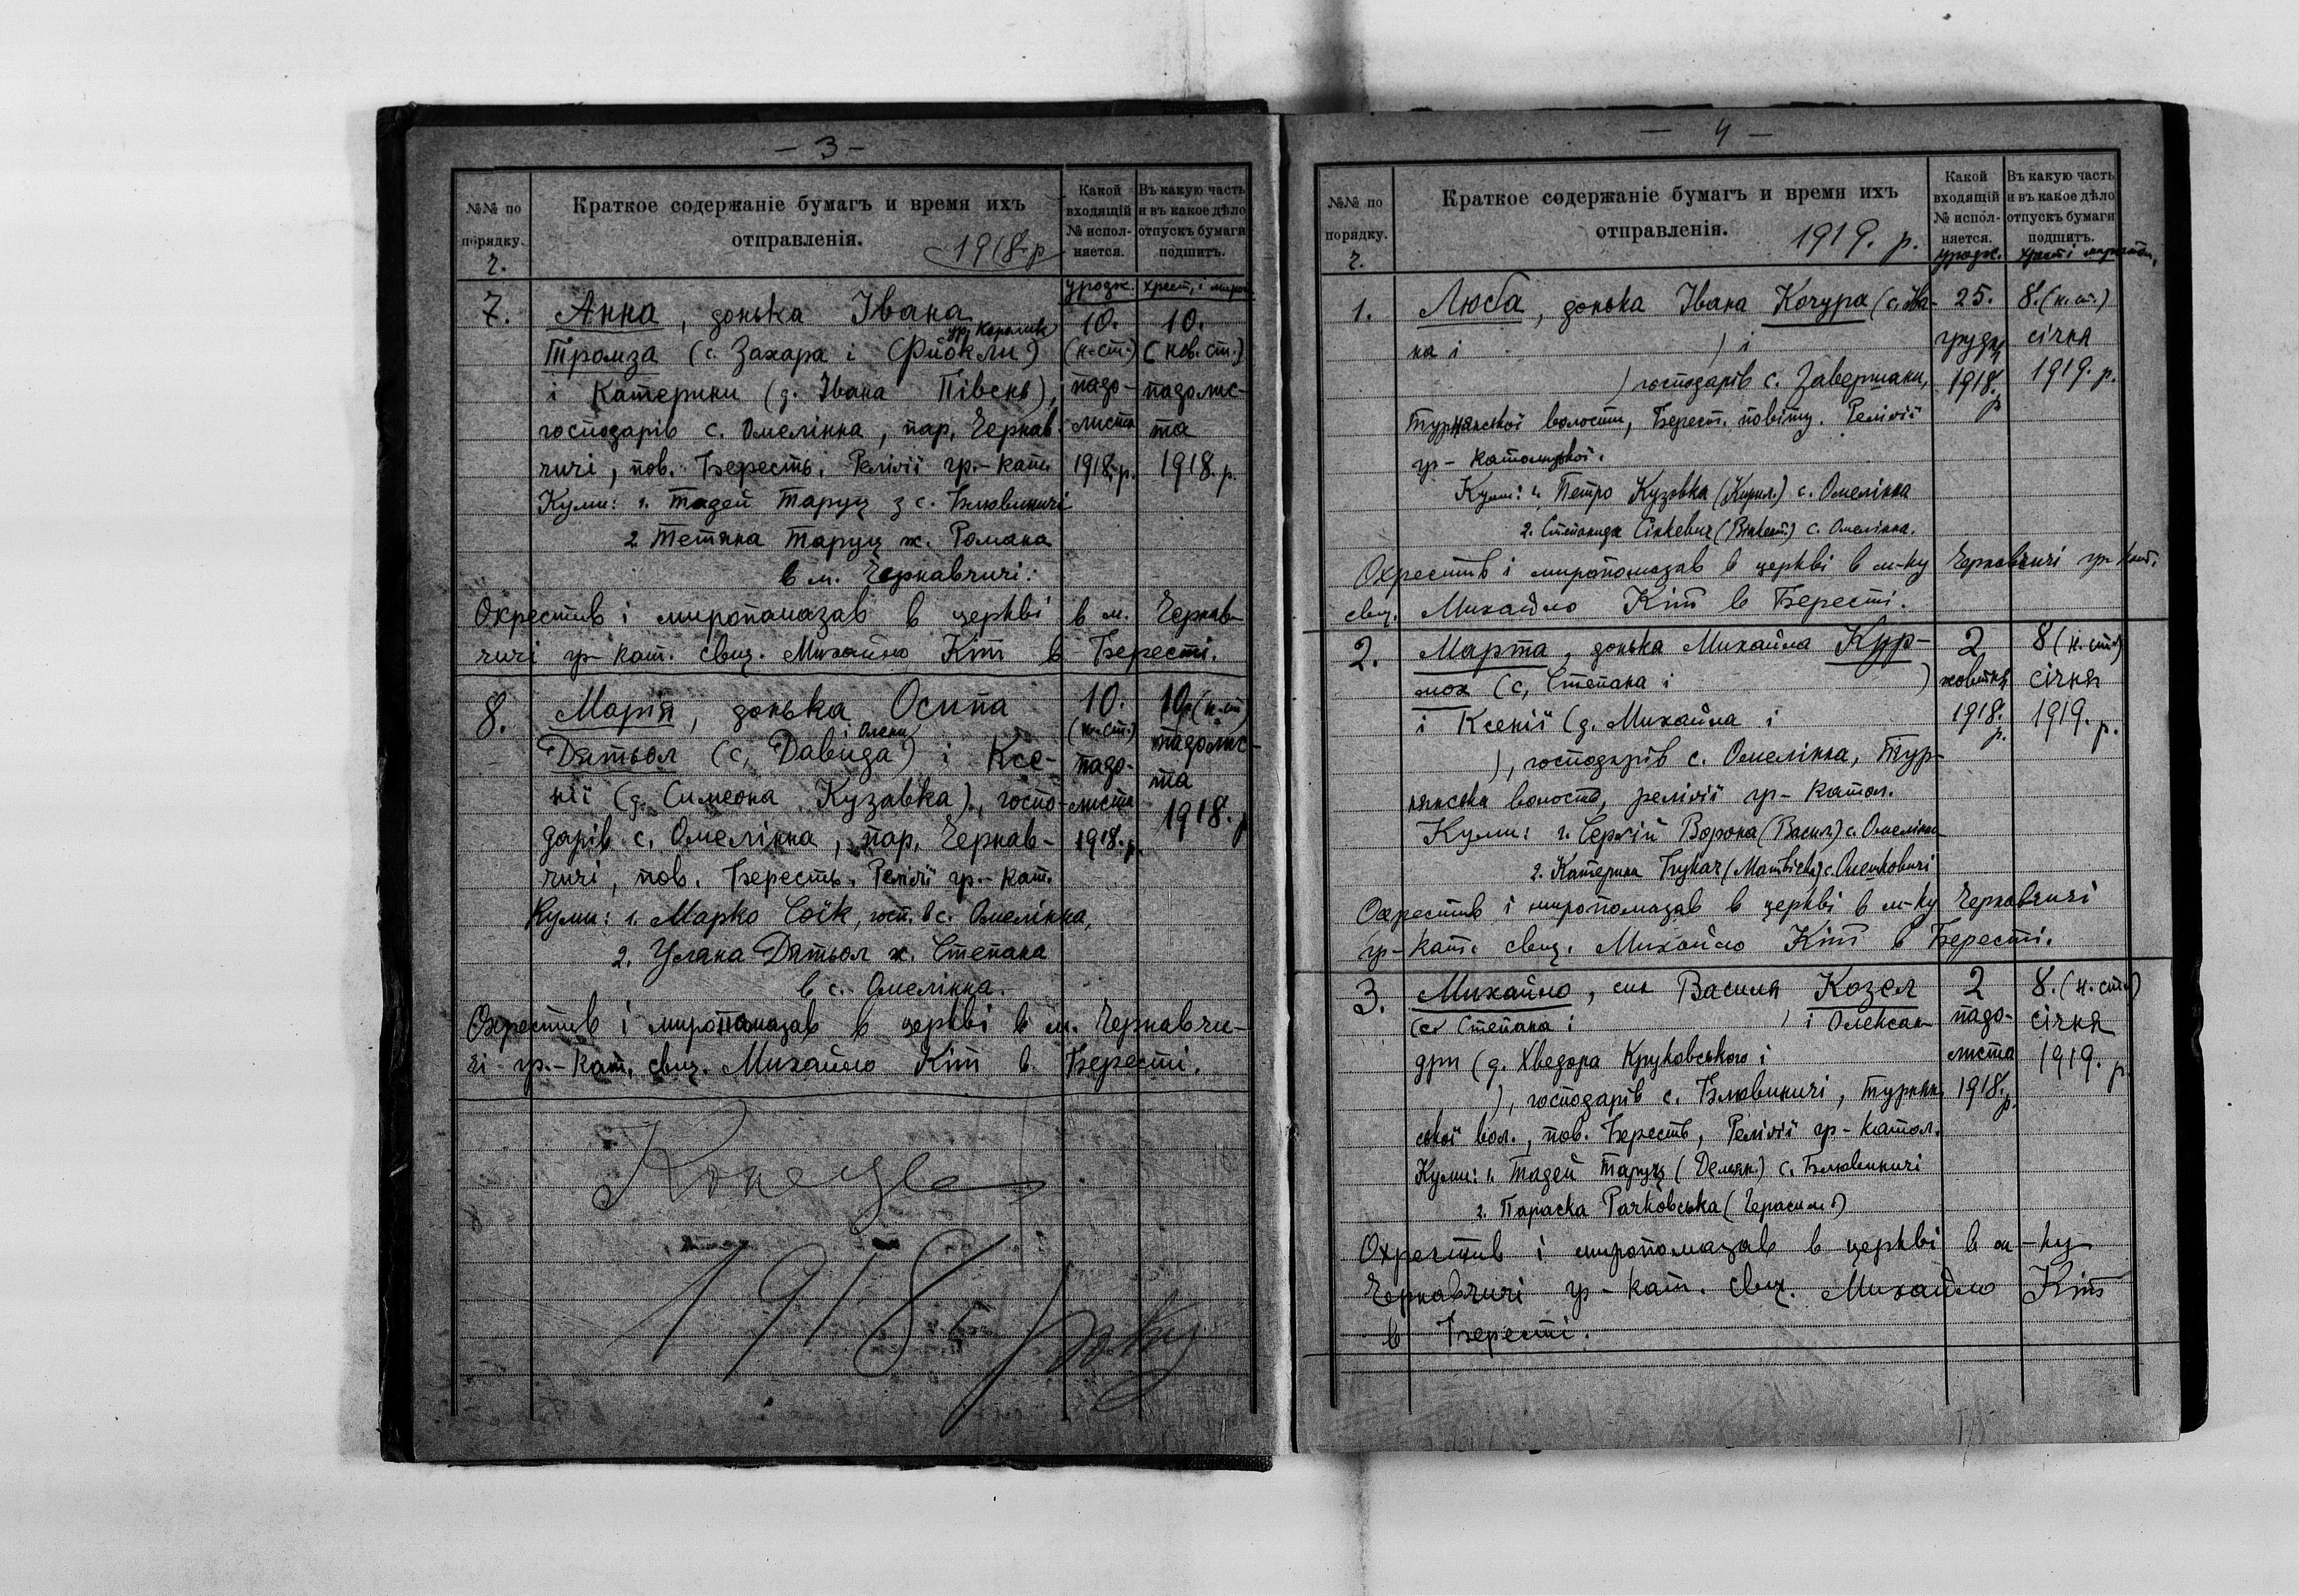 — 3 —
№№ по порядку.
Краткое содержаніе бумагъ и время ихъ отправленія.
Какой входящій № испол- няется.
Въ какую часть и въ какое дѣло отпускъ бумаги подшитъ.
ч.
1918. р
уродж.
хрест. і миро
7. Анна, донька Івана 10. 10.
ур. Корольик
Тромза (с. Захара і Фйокли) (н. ст.) (нов. ст.)
і Катерини (д. Івана Півень), падо- падолис-
господарів с. Омелінна, пар. Чернав- листа та
чичі, пов. Бересть. Релігії гр.-кат. 1918. р. 1918. р.
Куми: 1. Тадей Таруц з с. Блювиничі
2. Тетяна Таруц ж. Романа
в м. Чернавчичі:
Охрестив і миропомазав в церкві в м. Чернав-
чичі гр-кат. свящ. Михайло Кіт в Бересті.
8. Марія, донька Осипа 10. 10. (н. ст)
Олени
Дятьол (с. Давида і ) і Ксе- (н. ст.) падолис-
нії (д. Симеона Кузавка), госпо- падо- та
дарів с. Омелінна, пар. Чернав- листа 1918. р
чичі, пов. Бересть. Релігії гр.-кат. 1918. р.
Куми: 1. Марко Соїк, госп. в с. Омелінна,
2. Уляна Дятьол ж. Степана
в с. Омелінна.
Охрестив і миропомазав в церкві в м. Чернавчи-
чі гр.-кат. свящ. Михайло Кіт в Бересті.
Конець
1918
року
— 4 —
№№ по порядку.
Краткое содержаніе бумагъ и время ихъ отправленія.
Какой входящій № испол- няется.
Въ какую часть и въ какое дѣло отпускъ бумаги подшитъ.
ч.
1919. р.
уродж.
1. Люба, донька Івана Кочура (с. Іва- 25. 8. (н. ст.)
на і ) і грудня січня
) господарів с. Завершани, 1918. р 1919. р.
Турнянської волости, Берест. повіту. Релігії
гр-католицької.
Куми: 1. Петро Кузовка (Кирил.) с. Омелінна
2. Степанида Сінкевич с. Омелінна.
Охрестив і миропомазав в церкві в м-ку Чернавчичі гр-кат.
свящ. Михайло Кіт в Бересті.
2. Марта, донька Михайла Кур- 2 8 (н. ст.)
мох (с. Степана і ) жовтня січня
і Ксенії (д. Михайла і 1918. р. 1919. р.
), господарів с. Омелінна, Тур-
нянська волость, релігії гр-катол.
Куми: 1. Сергій Ворона (Васил.) с. Омелінна
2. Катерина Букач (Матвієва) с. Омельковичі
Охрестив і миропомазав в церкві в м-ку Чернавчичі
гр-кат. свящ. Михайло Кіт в Бересті.
3. Михайло, син Василя Козел 2 8. (н. ст.)
(с. Степана і ) і Олексан- падо- січня
дри (д. Хведора Круковського і листа 1919. р
), господарів с. Блювиничі, Турнян- 1918. р.
ської вол., пов. Бересть, Релігії гр-катол.
Куми: 1. Тадей Таруц (Демян.) с. Блювиничі
2. Параска Рачковська (Герасим.)
Охрестив і миропомазав в церкві в м-ку
Чернавчичі гр-кат. свящ. Михайло Кіт
в Бересті.